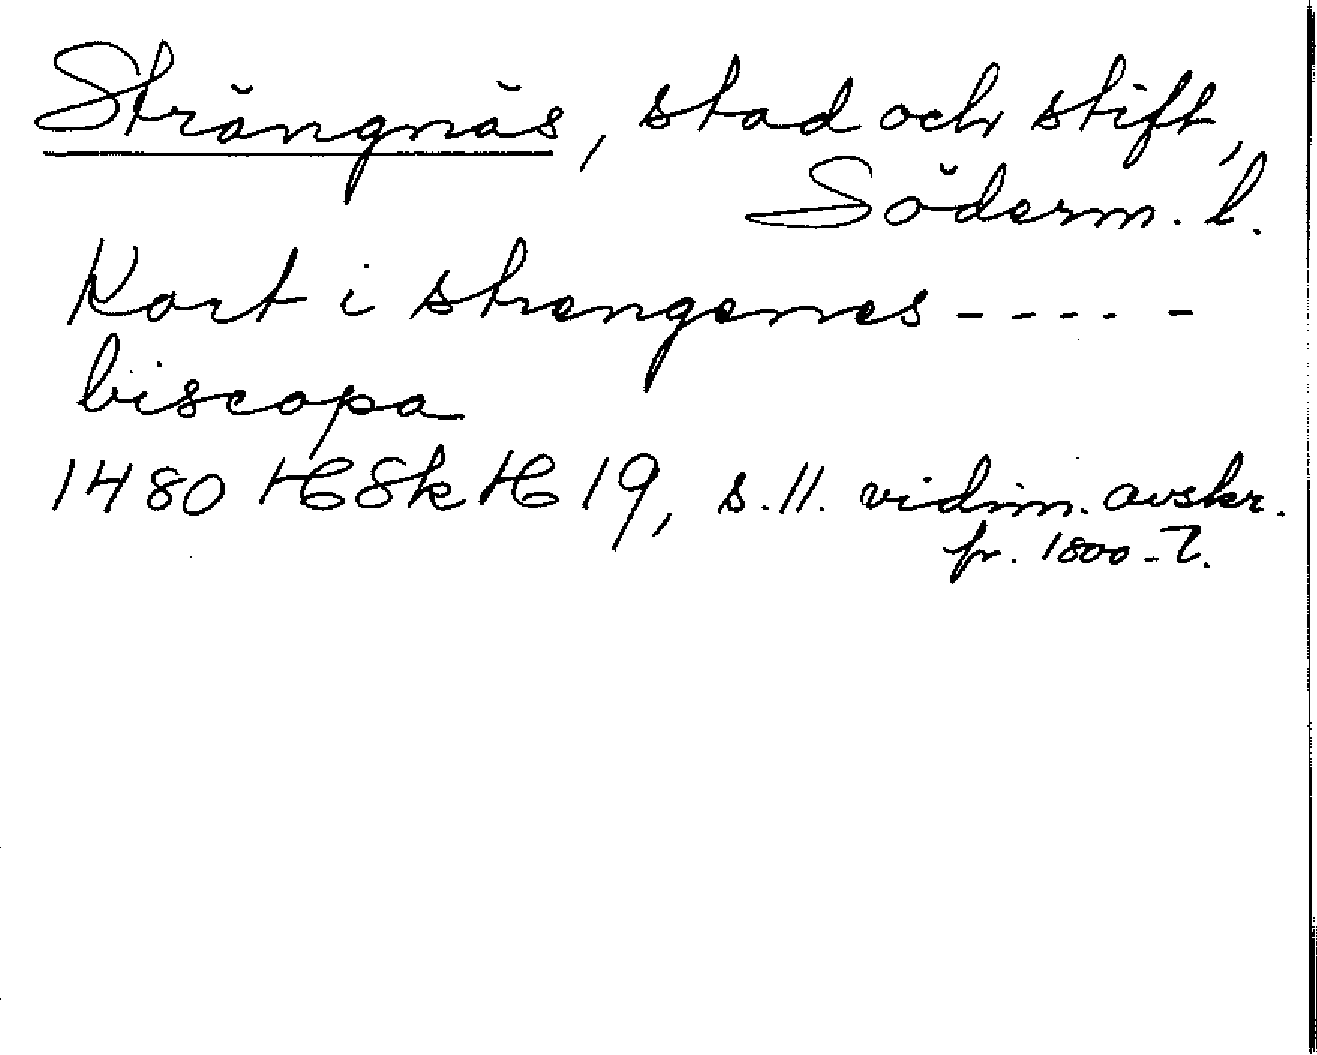 Strängnäs, stad och stift,
Söderm. l.
Kort i strengenes - - - - -
biscopa
1480 HSkH 19, s. 11. vidim. avskr.
fr. 1800-t.